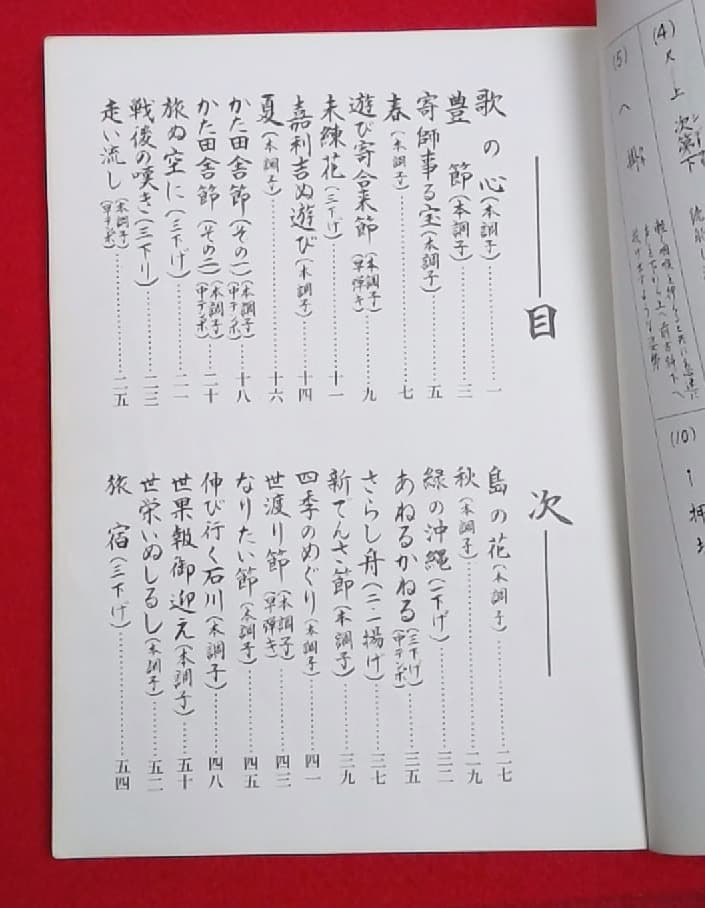 目次
歌の心(本調子)………一
豊節(本調子)………三
寄師事る宝(本調子)………五
春(本調子)………七
遊び寄合来節(本調子)(早弾き)………九
未練花(三下げ)………十一
嘉利吉ぬ遊び(本調子)………十四
夏(本調子)………十六
かた田舎節(その一)(本調子)(中テンポ)………十八
かた田舎節(その二)(本調子)(中テンポ)………二十
旅ぬ空に(三下げ)………二一
戦後の嘆き(三下り)………二三
走い流し(本調子)(早テンポ)………二五
島の花(本調子)………二七
秋(本調子)………二九
緑の沖縄(一下げ)………三二
あねるかねる(三下げ)(中テンポ)………三五
さらし舟(二揚げ)………三七
新でんさ節(本調子)………三九
四季のめぐり(本調子)………四一
世渡り節(本調子)(早弾き)………四三
なりたい節(本調子)………四五
伸び行く石川(本調子)………四八
世果報御迎え(本調子)………五十
世栄いぬしるし(本調子)………五二
旅宿(三下げ)………五四
(4)
上
次第下
(5)
(10)
押